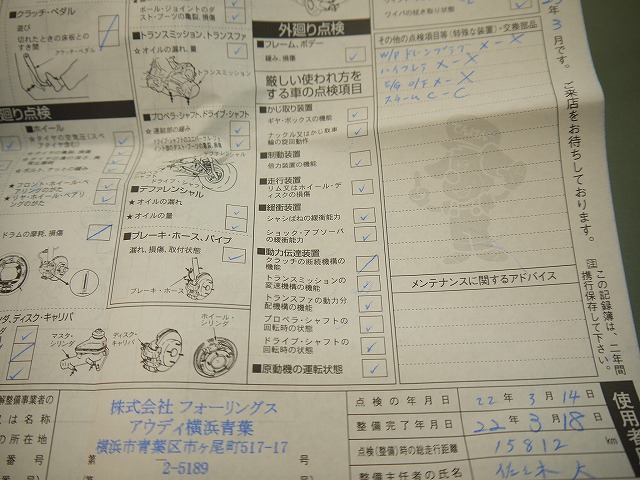 クラッチ・ペダル
遊び
切れたときの床板とのすき間
クラッチ・ペダル
廻り点検
ホイール
★フロント・ホイール・ベアリングのがた
★リヤ・ホイール・ベアリングのがた
ドラムの摩耗、損傷
ダ、ディスク・キャリパ
マスタ・シリンダ
ディスク・キャリパ
ホイール・シリンダ
ボール・ジョイントのダスト・ブーツの亀裂、損傷
■トランスミッション、トランスファ
★オイルの漏れ、量
トランスミッション
■プロペラ・シャフト、ドライブ・シャフト
★連結部の緩み
ドライブ・シャフト
■デファレンシャル
★オイルの漏れ
★オイルの量
■ブレーキ・ホース、パイプ
漏れ、損傷、取付状態
ブレーキ・ホース
外廻り点検
■フレーム、ボデー
緩み、損傷
厳しい使われ方をする車の点検項目
■かじ取り装置
ギヤ・ボックスの機能
ナックル又はかじ取車輪の旋回動作
■制動装置
倍力装置の機能
■走行装置
リム又はホイール・ディスクの損傷
■緩衝装置
シャシばねの緩衝能力
ショック・アブソーバの緩衝能力
■動力伝達装置
クラッチの断続機構の機能
トランスミッションの変速機構の機能
トランスファの動力分配機構の機能
プロペラ・シャフトの回転時の状態
ドライブ・シャフトの回転時の状態
■原動機の運転状態
ワイパの拭き取り状態
その他の点検項目等(特殊な装置)・交換部品
メンテナンスに関するアドバイス
3月です。
ご来店をお待ちしております。
注 この記録簿は、二年間携行保存して下さい。
点検の年月日 22年 3月 14日
整備完了年月日 22年 3月 18日
点検(整備)時の総走行距離 15812 km
整備主任者の氏名
使用者
解整備事業者の
又は名称
の所在地
番号 第
番号 第
株式会社 フォーリングス
アウディ横浜青葉
横浜市青葉区市ヶ尾町517-17
2-5189